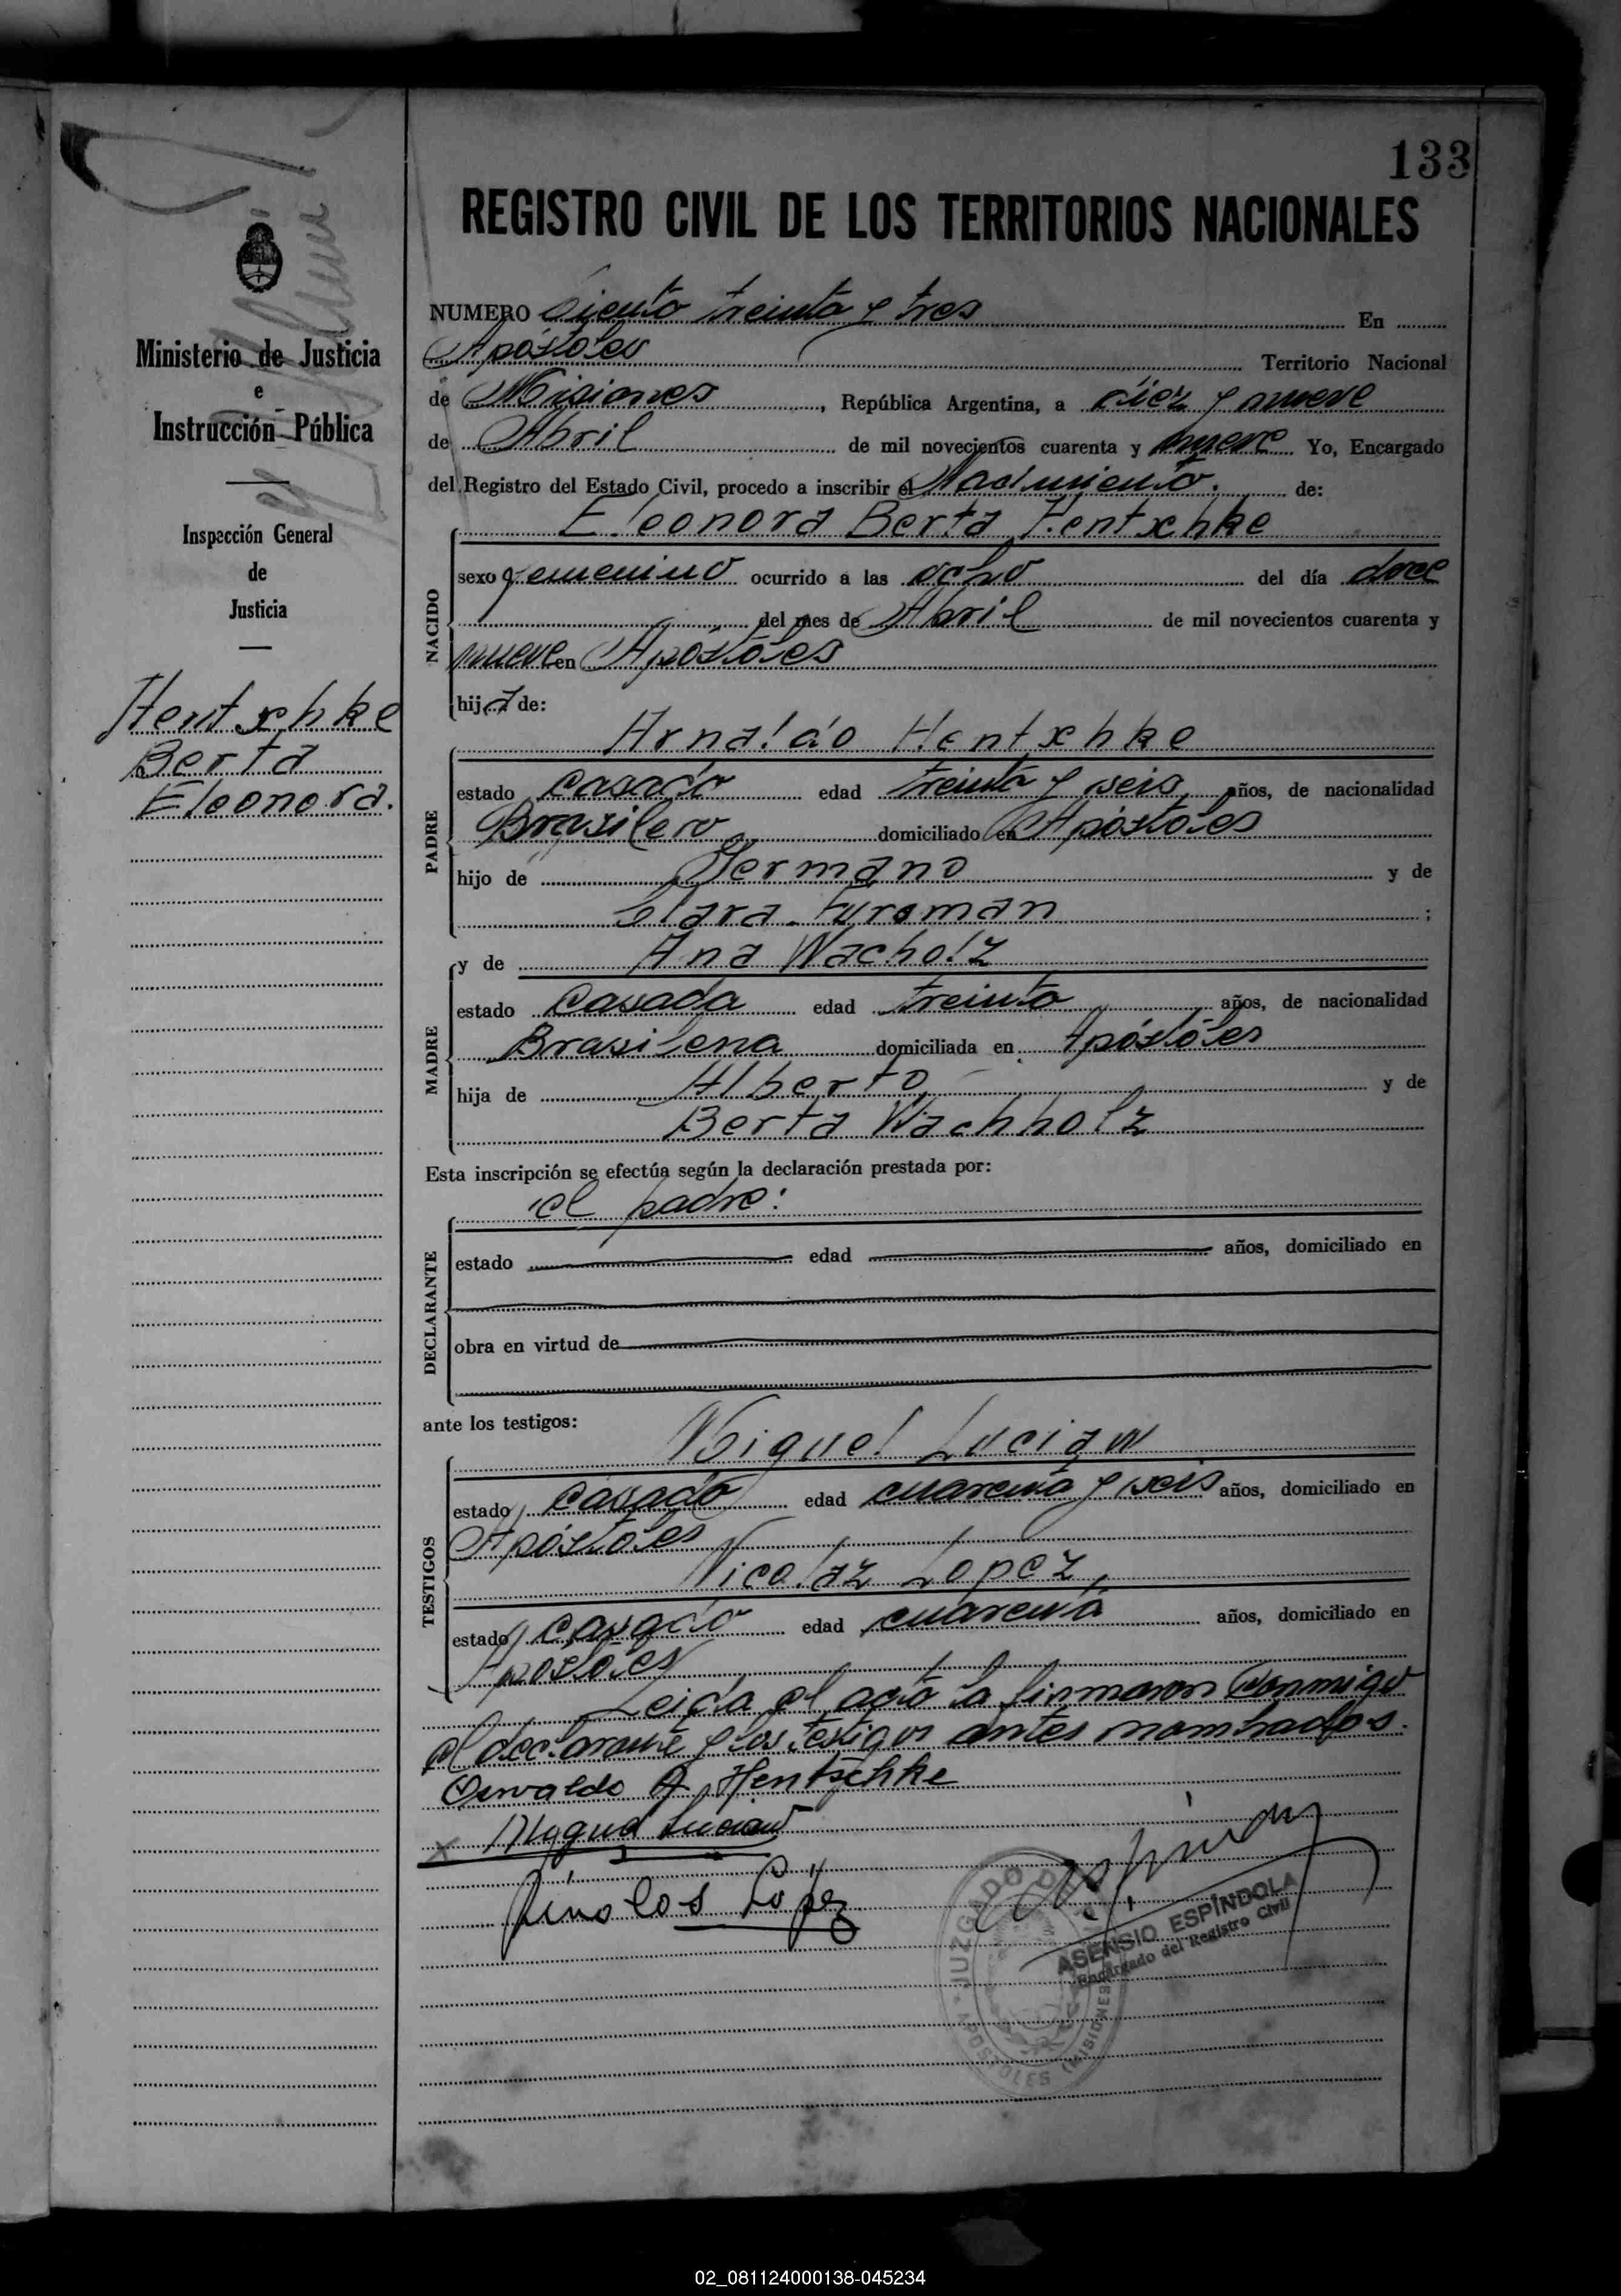 133
REGISTRO CIVIL DE LOS TERRITORIOS NACIONALES
Ministerio de Justicia
e
Instrucción Pública
Inspección General
de
Justicia
Hentschke
Berta
Eleonora.
NUMERO Ciento treinta y tres En
Apóstoles Territorio Nacional
de Misiones, República Argentina, a diez y nueve
de Abril de mil novecientos cuarenta y nueve Yo, Encargado
del Registro del Estado Civil, procedo a inscribir el Nacimiento. de:
Eleonora Berta Hentschke
NACIDO
sexo femenino ocurrido a las ocho del día doce
del mes de Abril de mil novecientos cuarenta y
nueve en Apóstoles
hija de:
Arnaldo Hentschke
PADRE
estado Casado edad treinta y seis años, de nacionalidad
Brasilero domiciliado en Apóstoles
hijo de Germano y de
Clara ;
y de Ana Wacholz
MADRE
estado Casada edad treinta años, de nacionalidad
Brasilena domiciliada en Apóstoles
hija de Alberto y de
Berta Wachholz
Esta inscripción se efectúa según la declaración prestada por:
el padre:
DECLARANTE
estado edad años, domiciliado en
obra en virtud de
ante los testigos:
Miguel
TESTIGOS
estado Casado edad cuarenta y seis años, domiciliado en
Apóstoles
Nicolaz Lopez
estado casado edad cuarenta años, domiciliado en
Apóstoles
Leida el acta la firmaron conmigo
el declarante y los testigos antes nombrados.
Osvaldo A. Hentschke
López
JUZGADO DE
APOSTOLES (MISIONES)
ASENSIO ESPÍNDOLA
Encargado del Registro Civil
02_081124000138-045234